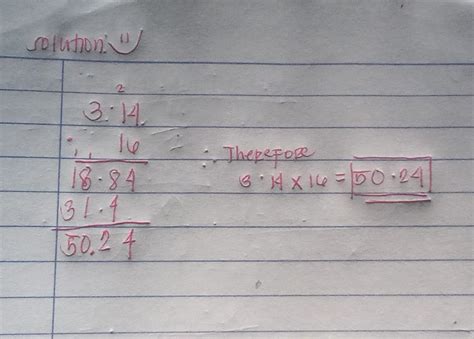 solution:
2
3.14
16
18.84
31.4
50.24
Therefore
3.14 x 16 = 50.24